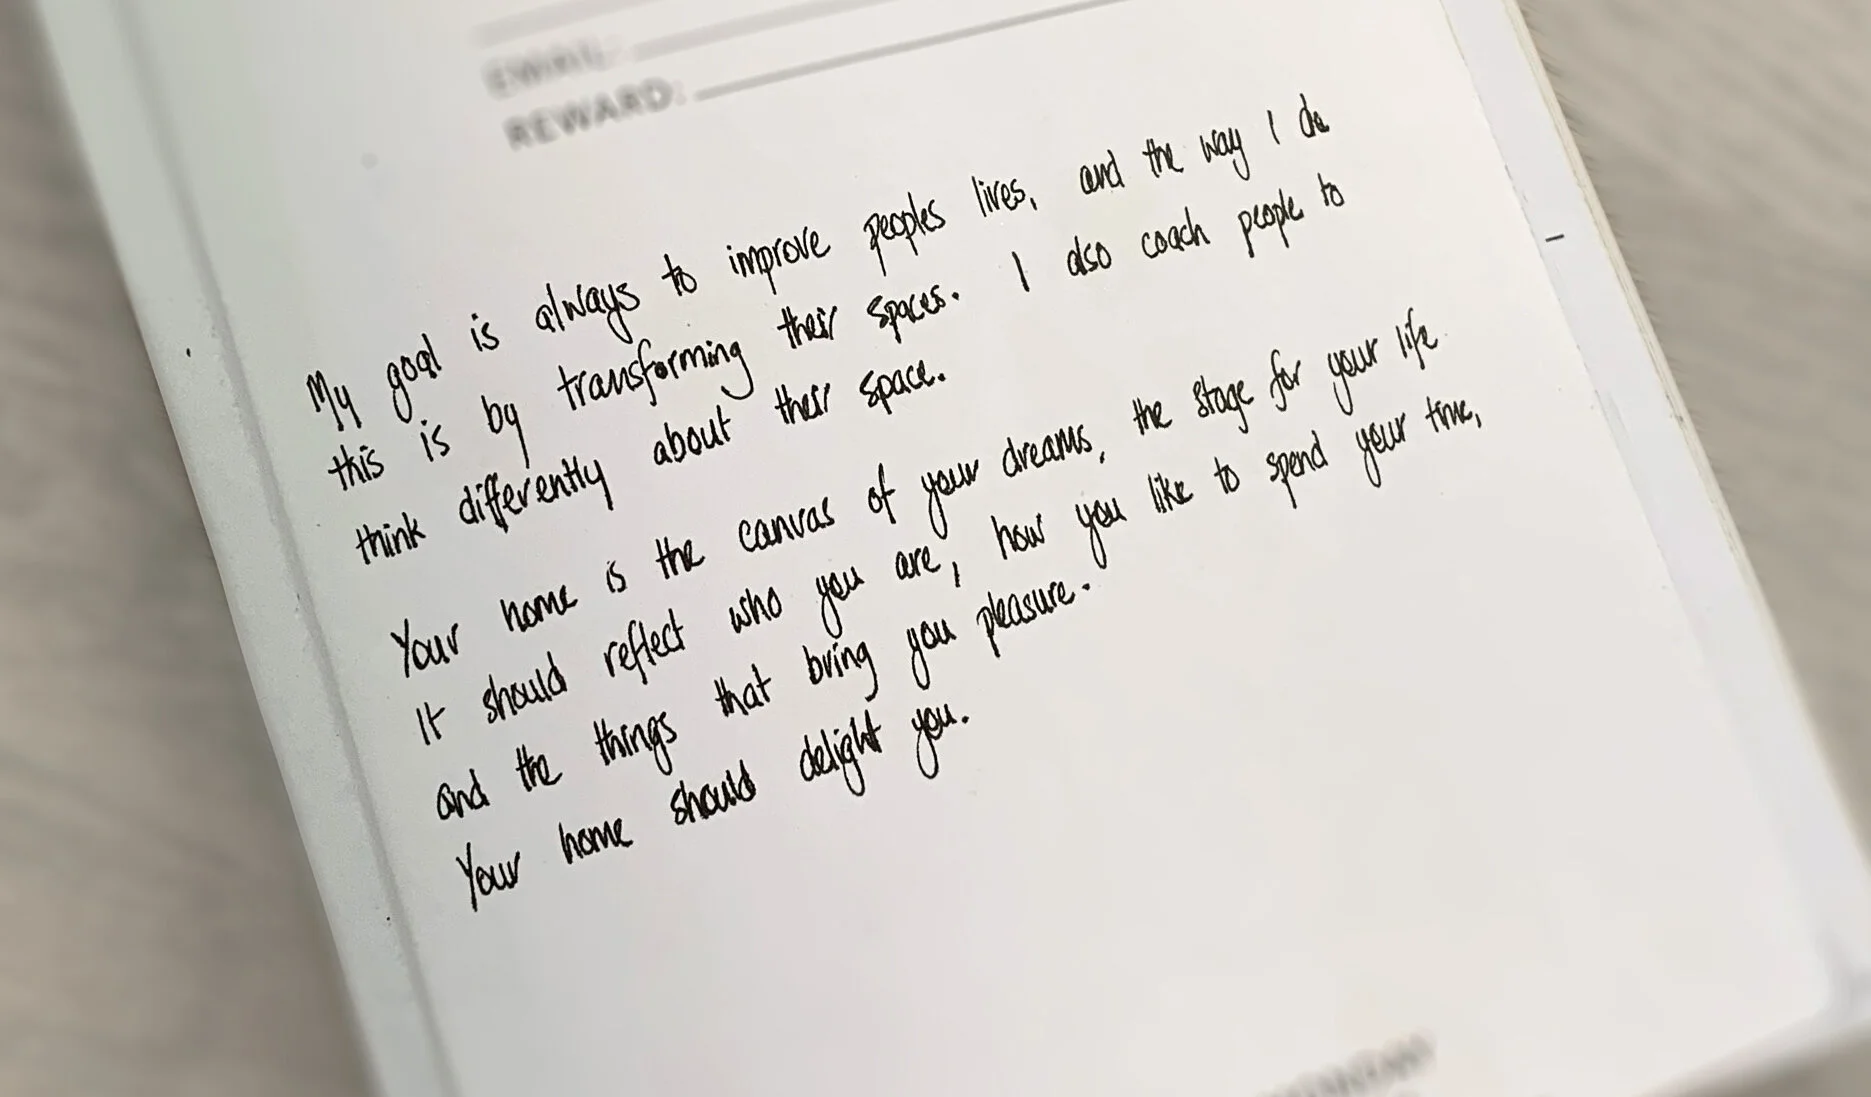 EMAIL:
REWARD:
My goal is always to improve peoples lives, and the way I do
this is by transforming their spaces. I also coach people to
think differently about their space.
Your home is the canvas of your dreams, the stage for your life.
It should reflect who you are, how you like to spend your time,
and the things that bring you pleasure.
Your home should delight you.